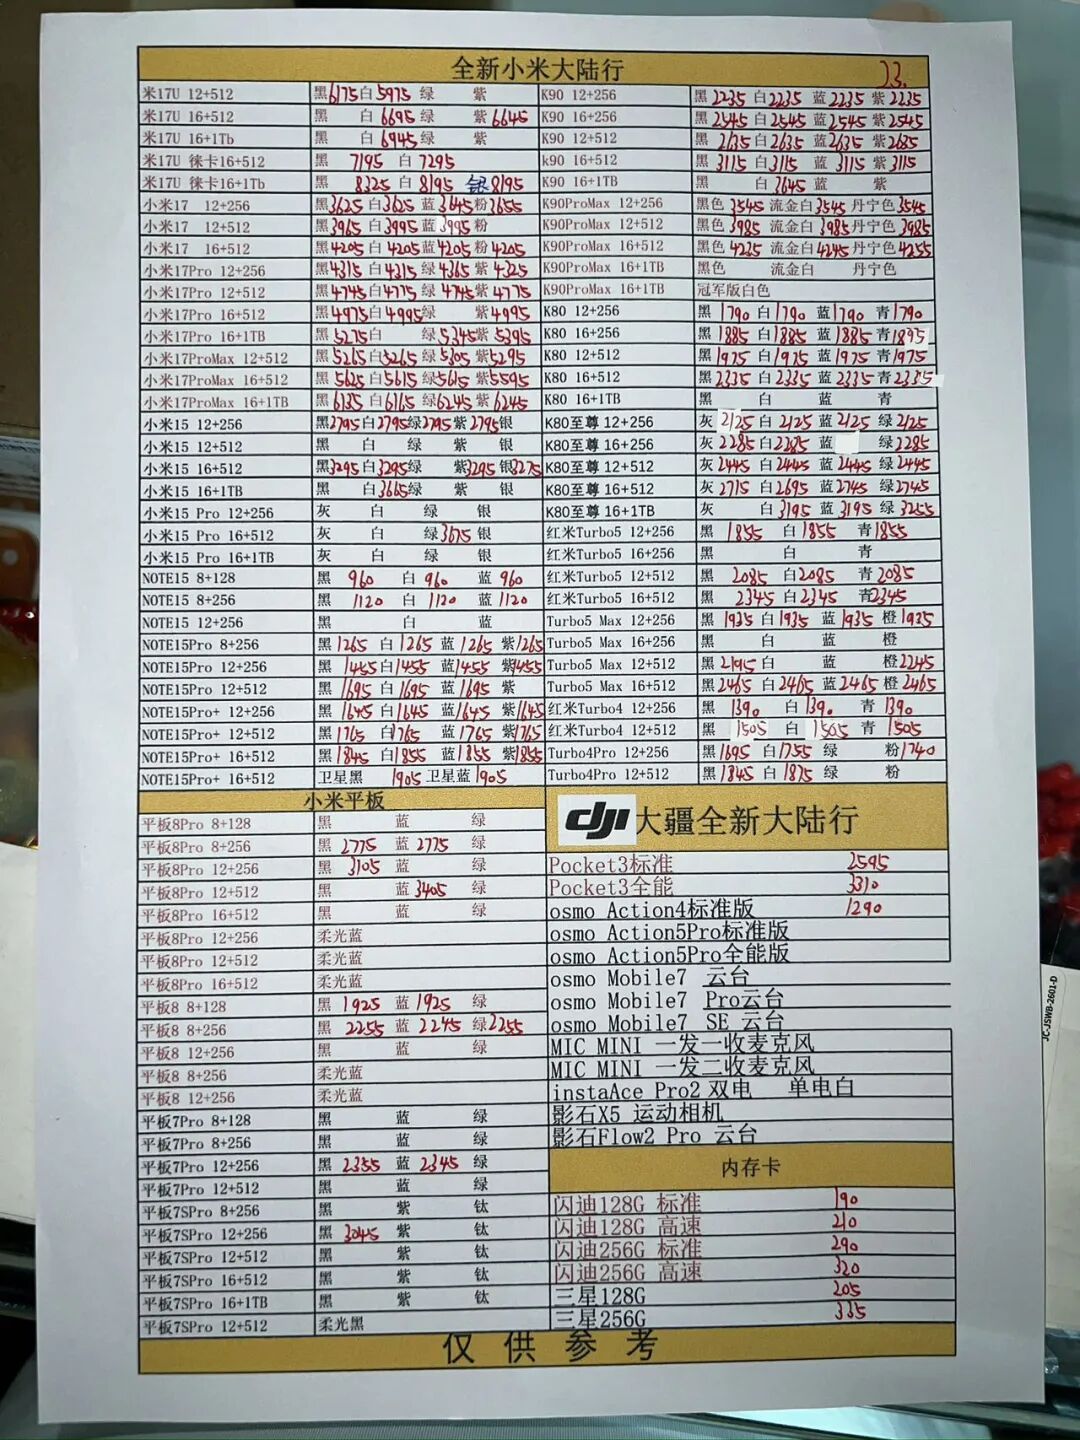 全新小米大陆行
米17U 12+512 黑6175白5975 绿 紫
米17U 16+512 黑 白6695 绿 紫6645
米17U 16+1Tb 黑 白6945 绿 紫
米17U 徕卡16+512 黑 7195 白7295
米17U 徕卡16+1Tb 黑 8325 白8195 银8195
小米17 12+256 黑3625 白3625 蓝3645粉3655
小米17 12+512 黑3965 白3995蓝3995粉
小米17 16+512 黑4205 白4205蓝4205粉4205
小米17Pro 12+256 黑4315 白4315 绿4365 紫4325
小米17Pro 12+512 黑4745白4775 绿4745紫4775
小米17Pro 16+512 黑4975白4995绿 紫4995
小米17Pro 16+1TB 黑5275白 绿5345紫5395
小米17ProMax 12+512 黑5265白5265 绿5305 紫5295
小米17ProMax 16+512 黑5625 白5615 绿5615 紫5595
小米17ProMax 16+1TB 黑6135 白6165 绿6245 紫6245
小米15 12+256 黑2795白2795绿2795紫2795银
小米15 12+512 黑 白 绿 紫 银
小米15 16+512 黑3295白3295绿 紫3295银3275
小米15 16+1TB 黑 白3665绿 紫 银
小米15 Pro 12+256 灰 白 绿 银
小米15 Pro 16+512 灰 白 绿3675银
小米15 Pro 16+1TB 灰 白 绿 银
NOTE15 8+128 黑 960 白960 蓝960
NOTE15 8+256 黑 1120 白1120 蓝1120
NOTE15 12+256 黑 白 蓝
NOTE15Pro 8+256 黑1265 白1265 蓝1265 紫1265
NOTE15Pro 12+256 黑1455白1455 蓝1455 紫1455
NOTE15Pro 12+512 黑1695 白1695 蓝1695 紫
NOTE15Pro+ 12+256 黑1645 白1645 蓝1645 紫1645
NOTE15Pro+ 12+512 黑1765 白1765 蓝1765 紫1765
NOTE15Pro+ 16+512 黑1845 白1855 蓝1855 紫1855
NOTE15Pro+ 16+512 卫星黑 1905 卫星蓝1905
K90 12+256 黑2235 白2235 蓝2235 紫2235
K90 16+256 黑2545 白2545 蓝2545 紫2545
K90 12+512 黑2635白2635 蓝2635 紫2685
k90 16+512 黑3115 白3115 蓝3115 紫3115
K90 16+1TB 黑 白3645 蓝 紫
K90ProMax 12+256 黑色3545 流金白3545 丹宁色3545
K90ProMax 12+512 黑色3985 流金白3985丹宁色3985
K90ProMax 16+512 黑色4235 流金白4245丹宁色4255
K90ProMax 16+1TB 黑色 流金白 丹宁色
K90ProMax 16+1TB 冠军版白色
K80 12+256 黑1790 白1790 蓝1790 青1790
K80 16+256 黑1885 白1885 蓝1885青1895
K80 12+512 黑1975 白1975 蓝1975 青1975
K80 16+512 黑2335 白2335 蓝2335青2335
K80 16+1TB 黑 白 蓝 青
K80至尊 12+256 灰2125 白2125 蓝2125 绿2125
K80至尊 16+256 灰2285白2285 蓝 绿2285
K80至尊 12+512 灰2445 白2445 蓝2445 绿2445
K80至尊 16+512 灰2715 白2695 蓝2745 绿2745
K80至尊 16+1TB 灰 白3195 蓝3195 绿3255
红米Turbo5 12+256 黑1855 白1855 青1855
红米Turbo5 16+256 黑 白 青
红米Turbo5 12+512 黑 2085 白2085 青2085
红米Turbo5 16+512 黑 2345 白2345 青2345
Turbo5 Max 12+256 黑1935 白1935 蓝1935 橙1935
Turbo5 Max 16+256 黑 白 蓝 橙
Turbo5 Max 12+512 黑2195白 蓝 橙2245
Turbo5 Max 16+512 黑2465 白2465 蓝2465 橙2465
红米Turbo4 12+256 黑1390 白1390 青1390
红米Turbo4 12+512 黑 1505 白1505 青1505
Turbo4Pro 12+256 黑1695 白1755 绿 粉1740
Turbo4Pro 12+512 黑1845 白1875 绿 粉
小米平板
平板8Pro 8+128 黑 蓝 绿
平板8Pro 8+256 黑 2775 蓝2775 绿
平板8Pro 12+256 黑 3105 蓝 绿
平板8Pro 12+512 黑 蓝3405 绿
平板8Pro 16+512 黑 蓝 绿
平板8Pro 12+256 柔光蓝
平板8Pro 12+512 柔光蓝
平板8Pro 16+512 柔光蓝
平板8 8+128 黑 1925 蓝1925 绿
平板8 8+256 黑 2255 蓝2245 绿2255
平板8 12+256 黑 蓝 绿
平板8 8+256 柔光蓝
平板8 12+256 柔光蓝
平板7Pro 8+128 黑 蓝 绿
平板7Pro 8+256 黑 蓝 绿
平板7Pro 12+256 黑 2355 蓝2345 绿
平板7Pro 12+512 黑 蓝 绿
平板7SPro 8+256 黑 紫 钛
平板7SPro 12+256 黑 3045 紫 钛
平板7SPro 12+512 黑 紫 钛
平板7SPro 16+512 黑 紫 钛
平板7SPro 16+1TB 黑 紫 钛
平板7SPro 12+512 柔光黑
dji大疆全新大陆行
Pocket3标准 2595
Pocket3全能 3310
osmo Action4标准版 1290
osmo Action5Pro标准版
osmo Action5Pro全能版
osmo Mobile7 云台
osmo Mobile7 Pro云台
osmo Mobile7 SE 云台
MIC MINI 一发一收麦克风
MIC MINI 一发二收麦克风
instaAce Pro2 双电 单电白
影石X5 运动相机
影石Flow2 Pro 云台
内存卡
闪迪128G 标准 190
闪迪128G 高速 210
闪迪256G 标准 290
闪迪256G 高速 320
三星128G 205
三星256G 335
仅供参考
JC-JSWB-2601-D